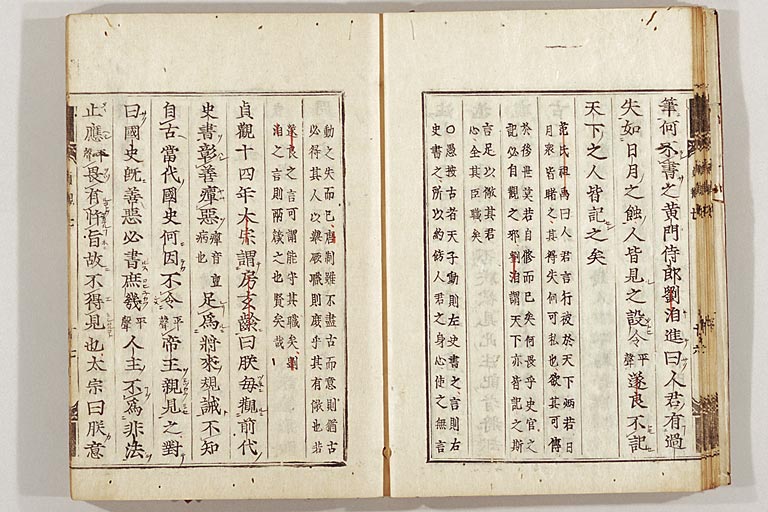 筆何不書之黄門侍郎劉洎進曰人君有過
失如日月之蝕人皆見之設令平聲遂良不記
天下之人皆記之矣
范氏祖禹曰人君言行被於天下炳若日
月衆皆睹之其得失何可私也欲其可傳
於後世莫若自修而已矣何畏乎史官之
記必自觀之邪劉洎謂天下亦皆記之斯
言足以儆其君
心全其臣職矣
○愚按古者天子動則左史書之言則右
史書之所以約飭人君之身心使之無言
動之失而已唐制雖不盡古而意則猶古
必得其人以舉厥職則庶乎其有儆也若
遂良之言可謂能守其職矣劉
洎之言則兩該之也賢矣哉
貞觀十四年太宗謂房玄齡曰朕毎觀前代
史書彰善癉惡癉音亶病也足爲將來規誡不知
自古當代國史何因不令平聲帝王親見之對
曰國史既善惡必書庶幾平聲人主不爲非法
止應平聲畏有忤旨故不得見也太宗曰朕意